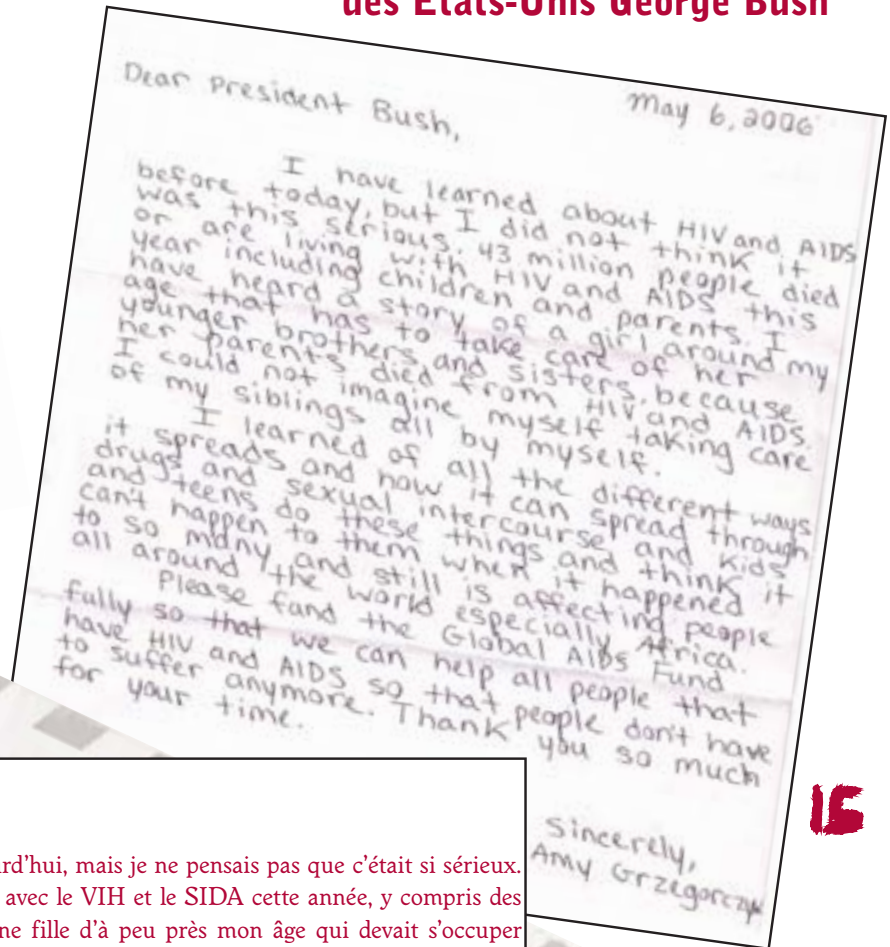 des États-Unis George Bush
May 6, 2006
Dear President Bush,
I have learned about HIV and AIDS
before today, but I did not think it
was this serious. 43 million people died
or are living with HIV and AIDS this
year including children and parents. I
have heard a story of a girl around my
age that has to take care of her
younger brothers and sisters, because
her parents died from HIV and AIDS.
I could not imagine myself taking care
of my siblings all by myself.
I learned of all the different ways
it spreads and how it can spread through
drugs and sexual intercourse and kids
and teens do these things and think it
can't happen to them when it happened
to so many and still is affecting people
all around the world especially Africa.
Please fund the Global AIDS Fund
fully so that we can help all people that
have HIV and AIDS so that people don't have
to suffer anymore. Thank you so much
for your time.
Sincerely,
Amy Grzegorczyk
15
rd'hui, mais je ne pensais pas que c'était si sérieux.
avec le VIH et le SIDA cette année, y compris des
ne fille d'à peu près mon âge qui devait s'occuper